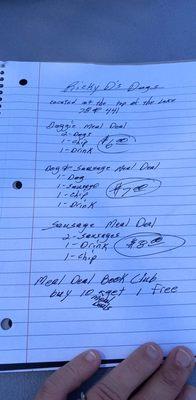 Ricky D's Dogs
Located at the top of the Lake
28 & 441
Doggie Meal Deal
2- Dogs
1- chip $6.00
1- Drink
Dog & Sausage Meal Deal
1- Dog
1- Sausage $7.00
1- Chip
1- Drink
Sausage Meal Deal
2- Sausages
1- Drink $8.00
1- Chip
Meal Deal Book Club
buy 10 & get 1 free
meal
Deals